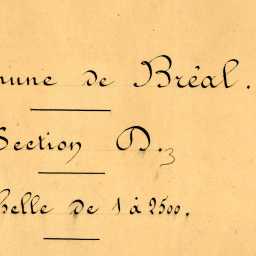 mune de Bréal.
Section D.
helle de 1 à 2500.